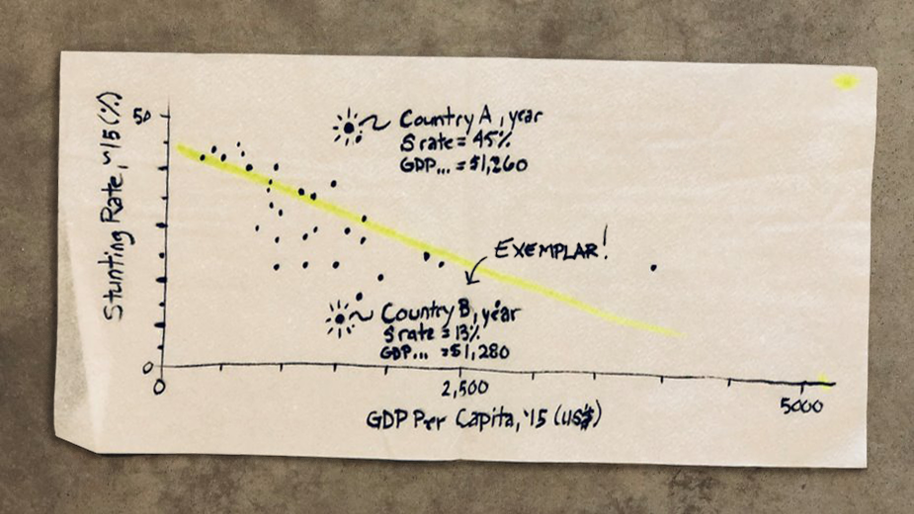 50
Country A, year
S rate = 45%
GDP... = $1,260
Stunting Rate, ~'15 (%)
EXEMPLAR!
Country B, year
S rate = 13%
GDP... = $1,280
0
0
2,500
5000
GDP Per Capita, '15 (US$)